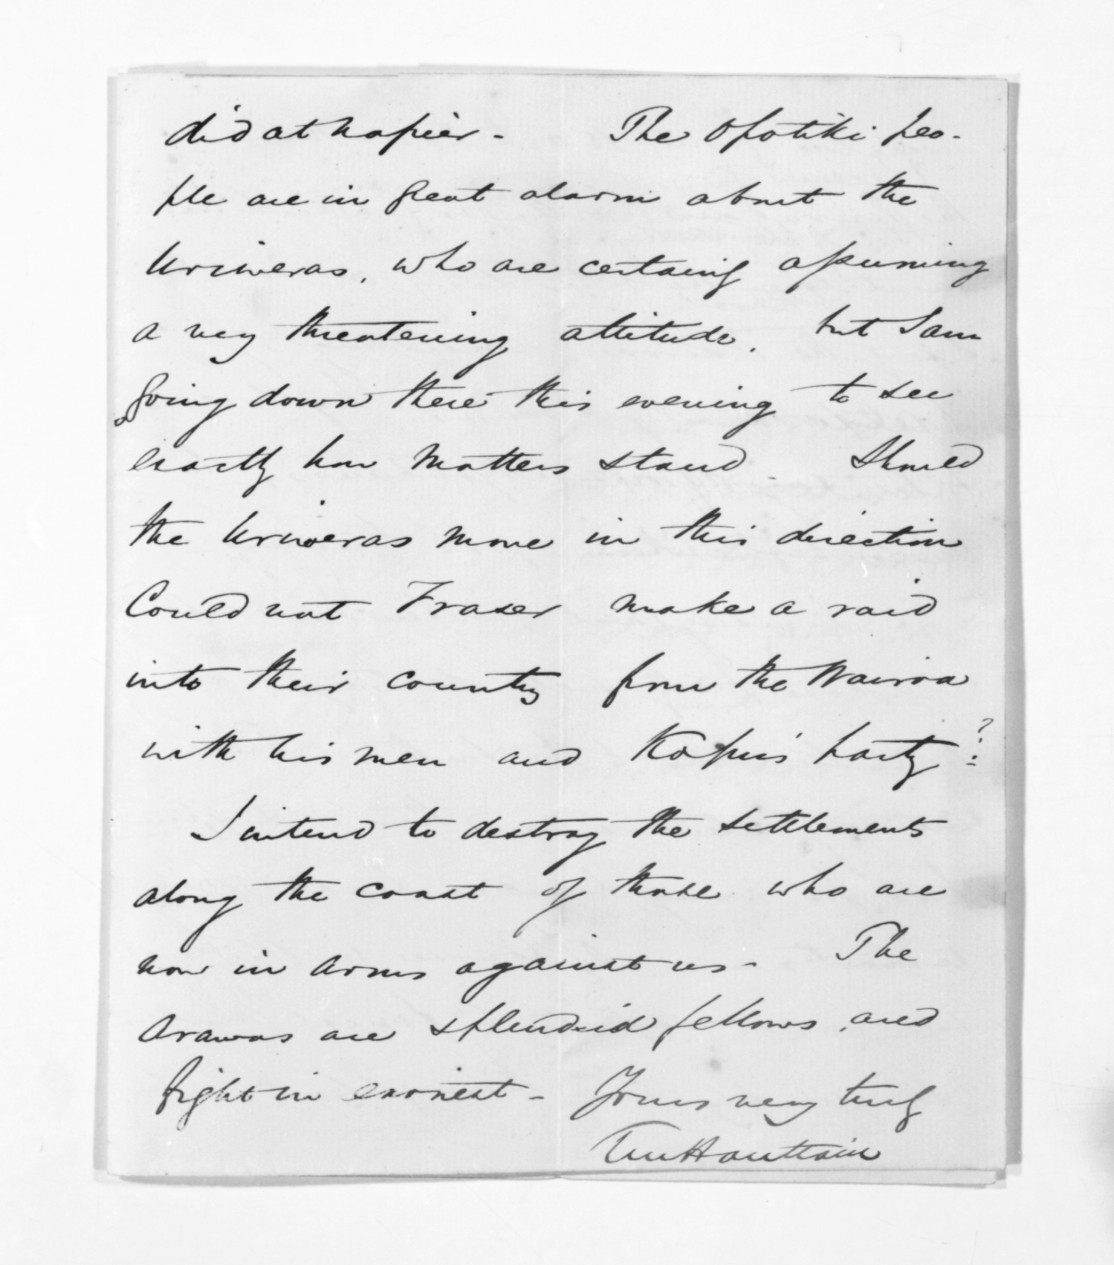 did at Napier - The Opotiki peo-
ple are in great alarm about the
Uriweras, who are certainly assuming
a very threatening attitude, but I am
going down there this evening to see
exactly how matters stand. Should
the Uriweras move in this direction
Could not Fraser make a raid
into their country from the Wairoa
with his men and Kopu's party?
I intend to destroy the settlements
along the coast of those who are
now in arms against us - The
Arawas are splendid fellows, and
fight in earnest - Yours very truly
Haultain